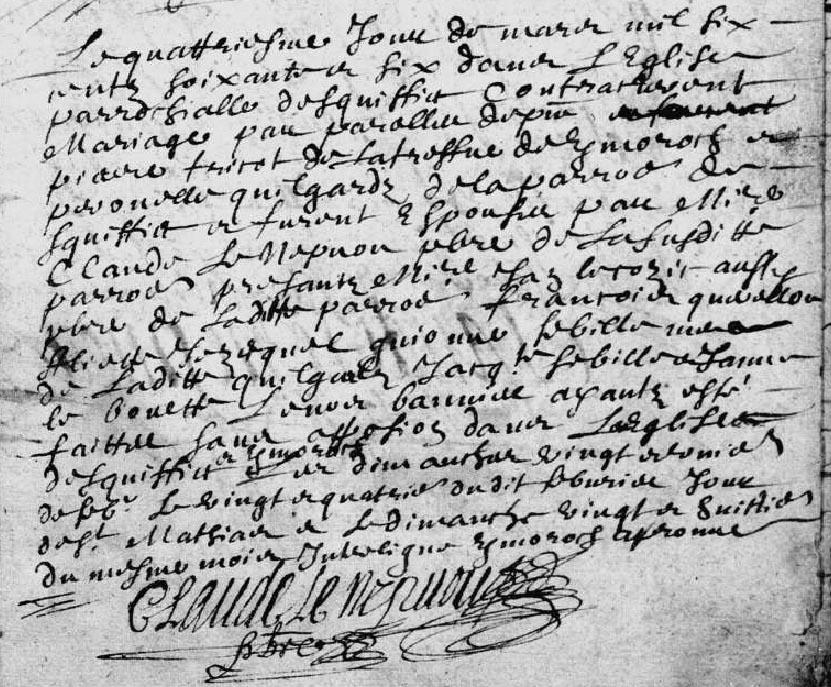 Le quattriesme Jour de mars mil six
centz soixante et six dans L'Eglise
parrochialle de squiffiec Contracterent
Mariage par parolles de pnt
pierre tricot de La treffve de Kmoroch et
peronelle quilgardz de la parroe de
squiffiec et furent Espousés par Mire
Claude Le Nepvou pbre de La susditte
parroe presantz Mire
pbre de Laditte parroe francois
quionne sebille mere
de Laditte Jacq. sebille Janne
le bouette Lenor bannies ayantz esté
faittes sans opposion dans L'Eglise
de squiffiec et Kmoroch dimanches vingt et
de feb. Le vingt et quatrie dudit feburier Jour
de st Mathias et Le dimanche vingt et huittie
du mesme mois Interligne Kmoroch aprouvé
Claude Le nepvou
pbre